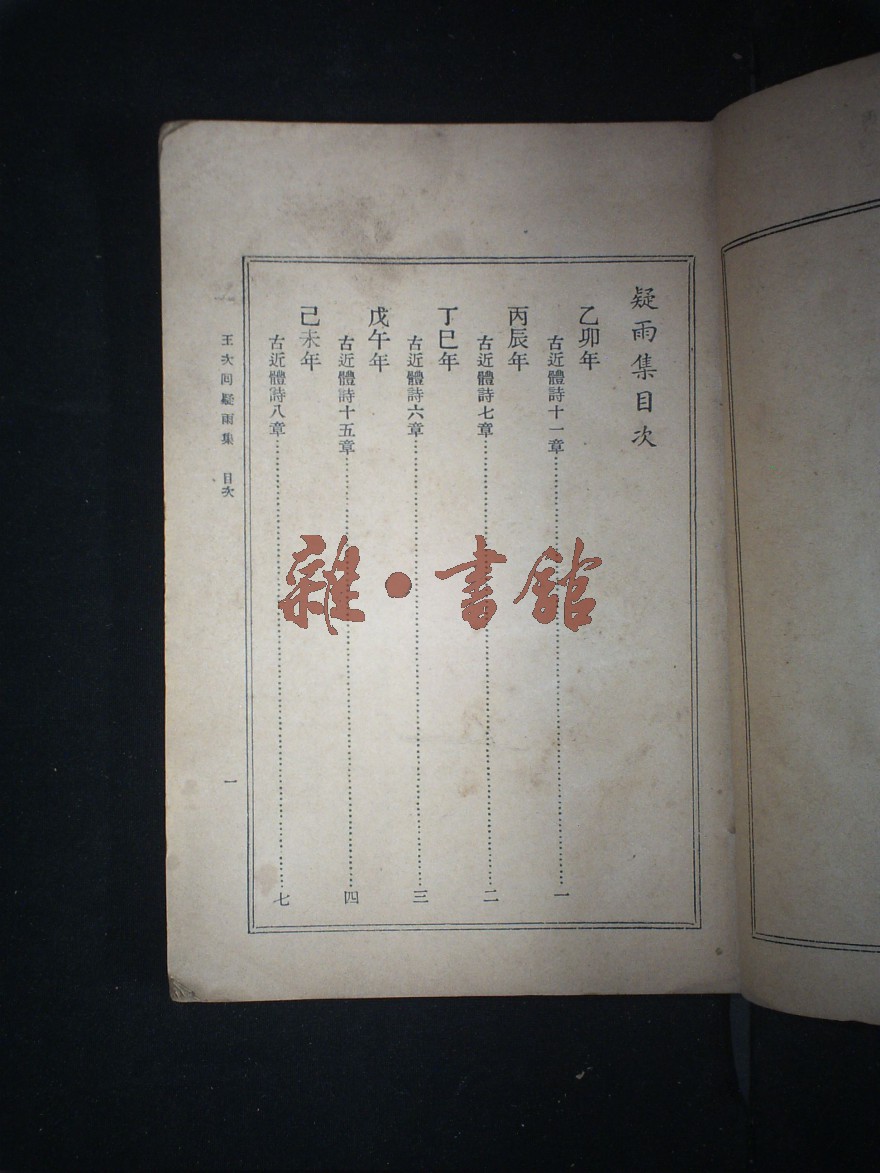 疑雨集目次
乙卯年
古近體詩十一章……一
丙辰年
古近體詩七章……二
丁巳年
古近體詩六章……三
戊午年
古近體詩十五章……四
己未年
古近體詩八章……七
王次回疑雨集 目次
一
雜·書館